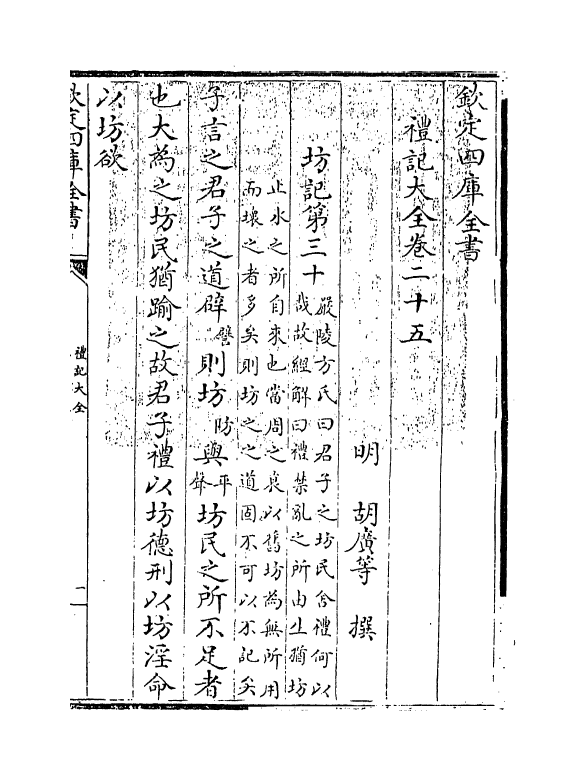 欽定四庫全書
禮記大全卷二十五
明　胡廣等　撰
坊記第三十
嚴陵方氏曰君子之坊民舍禮何以
哉故經解曰禮禁亂之所由生猶坊
止水之所自來也當周之衰以舊坊為無所用
而壞之者多矣則坊之之道固不可以不記矣
子言之君子之道辟譬則坊防與平聲坊民之所不足者
也大為之坊民猶踰之故君子禮以坊德刑以坊淫命
以坊欲
欽定四庫全書
禮記大全
一